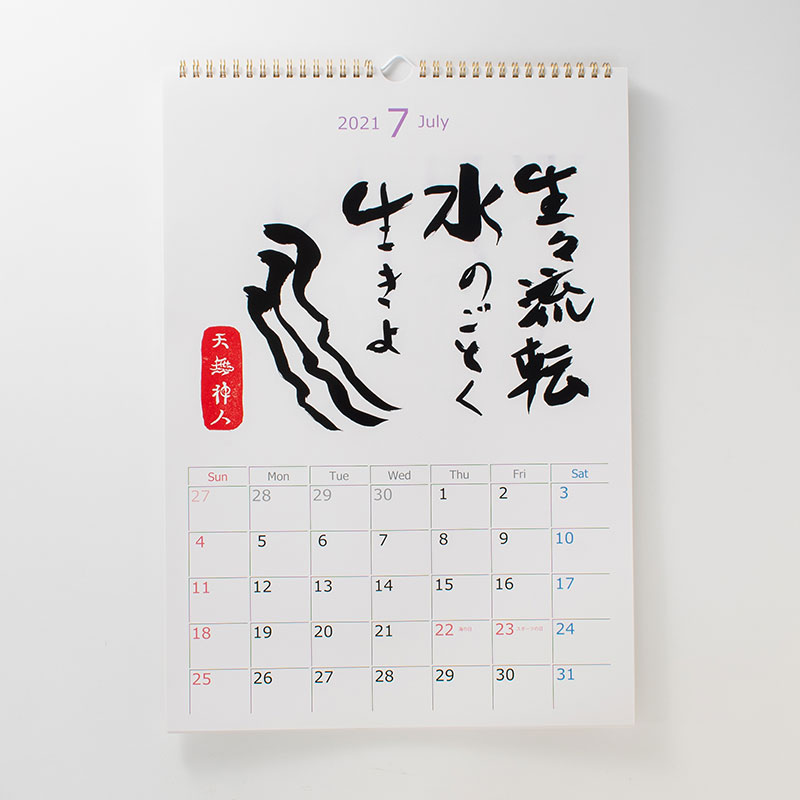 2021 7 July
生々流転
水のごとく
生きよ
天無神人
Sun Mon Tue Wed Thu Fri Sat
27 28 29 30 1 2 3
4 5 6 7 8 9 10
11 12 13 14 15 16 17
18 19 20 21 22 海の日 23 スポーツの日 24
25 26 27 28 29 30 31